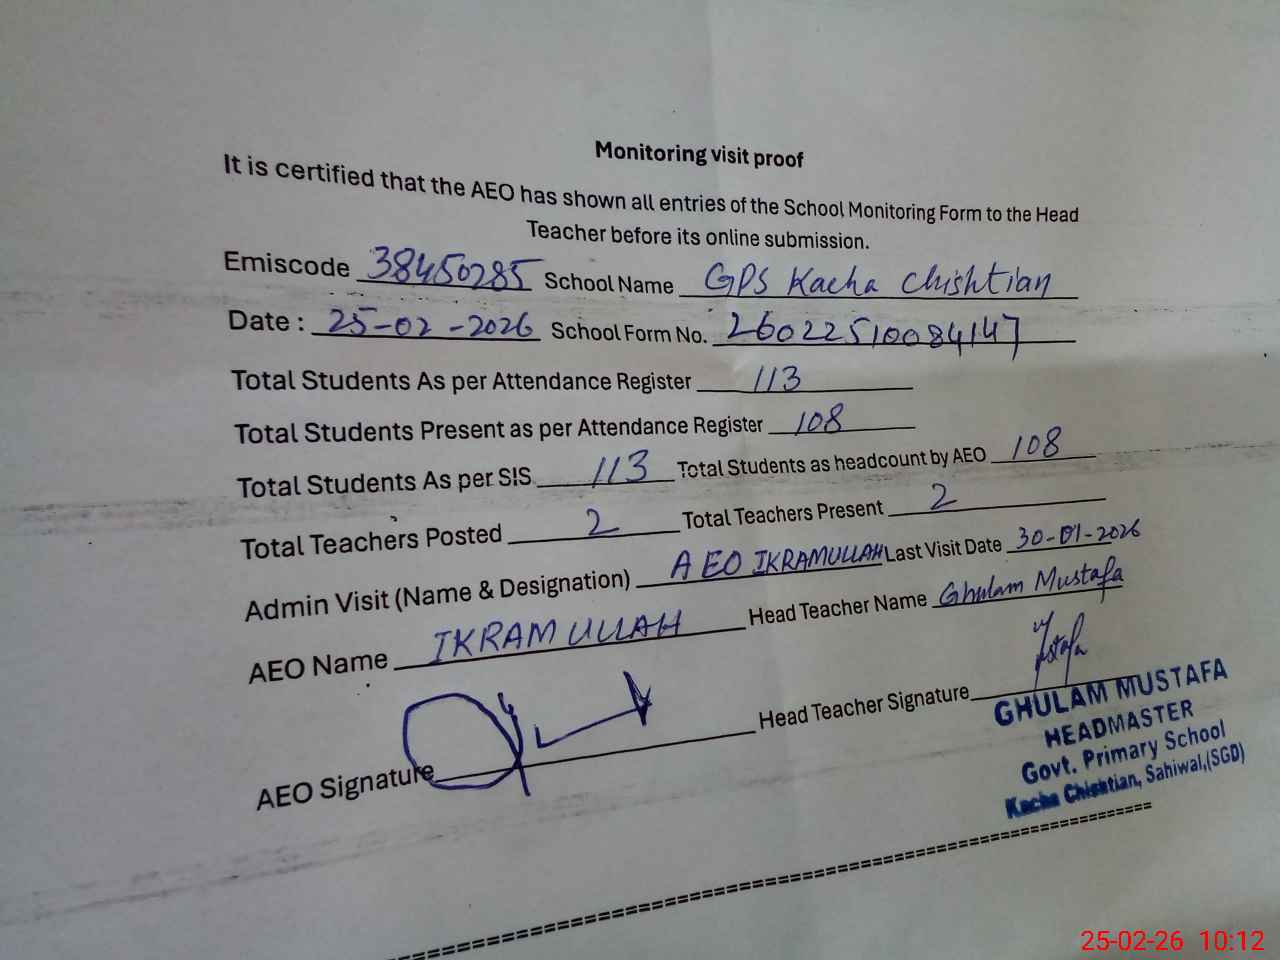 Monitoring visit proof
It is certified that the AEO has shown all entries of the School Monitoring Form to the Head
Teacher before its online submission.
Emiscode 38450285 School Name GPS Kacha Chishtian
Date : 25-02-2026 School Form No. 26022510084147
Total Students As per Attendance Register 113
Total Students Present as per Attendance Register 108
Total Students As per SIS 113 Total Students as headcount by AEO 108
Total Teachers Posted 2 Total Teachers Present 2
Admin Visit (Name & Designation) AEO IKRAMULLAH Last Visit Date 30-01-2026
AEO Name IKRAMULLAH Head Teacher Name Ghulam Mustafa
AEO Signature Head Teacher Signature
GHULAM MUSTAFA
HEADMASTER
Govt. Primary School
Kacha Chishtian, Sahiwal,(SGD)
25-02-26 10:12